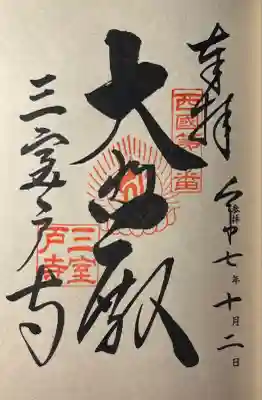 奉拝
令和七年十月二日
西國第十番
大悲殿
三室戸寺
三室戸寺